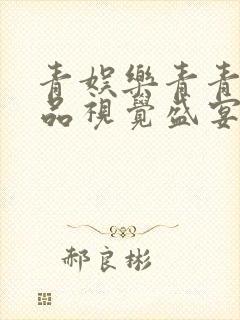 青娛樂青青
品視覺盛宴
郝良彬